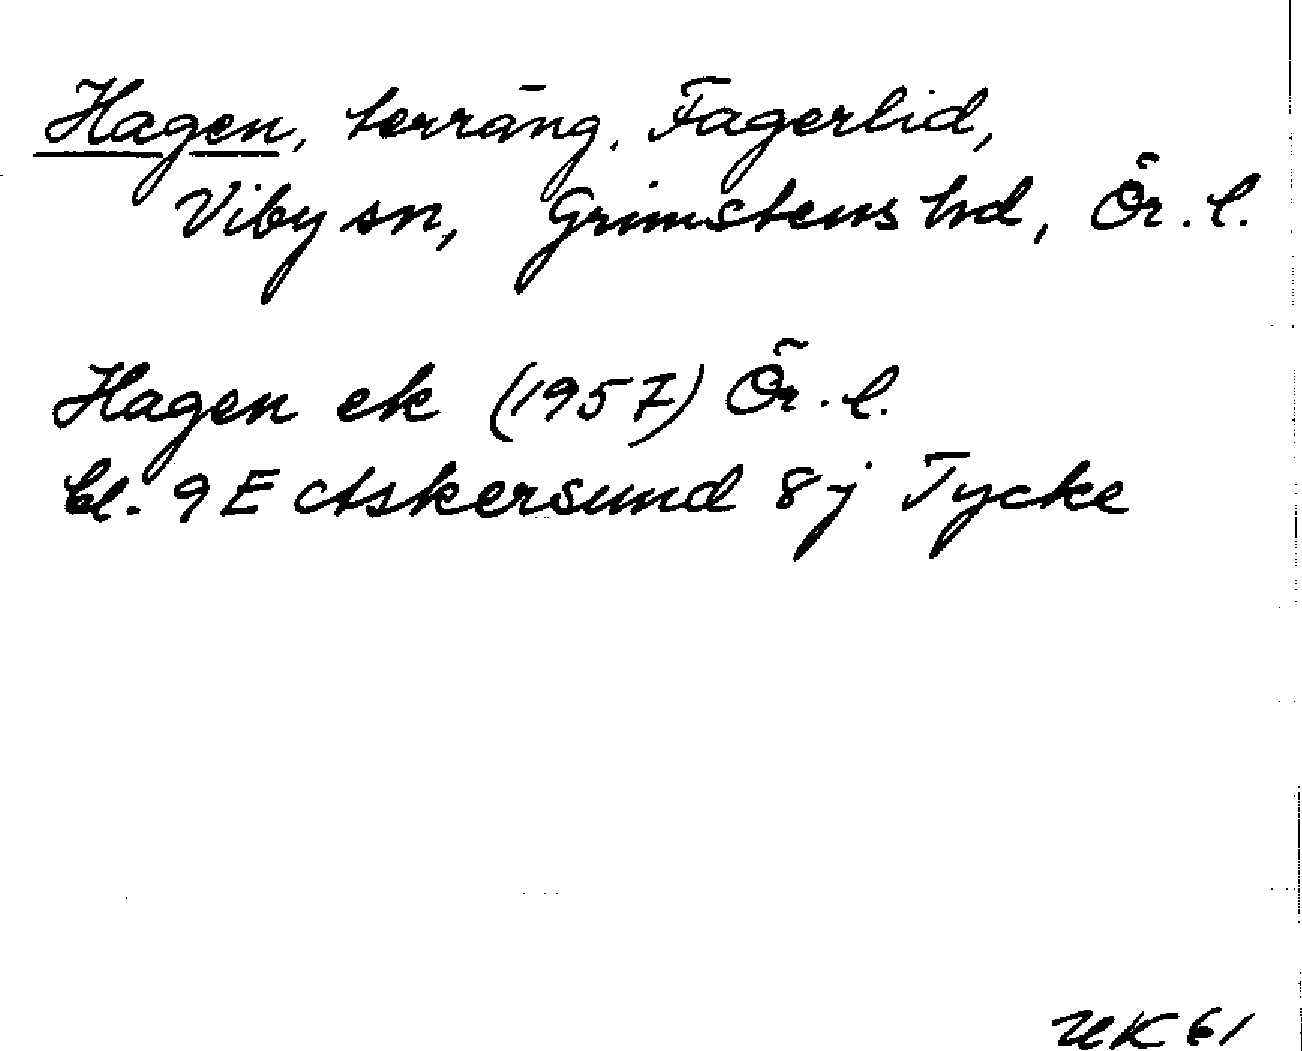 Hagen, terräng, Fagerlid,
Viby sn, Grimstens hd, Ör. l.
Hagen ek (1957) Ör. l.
bl. 9E Askersund 8j Tycke
UK 61